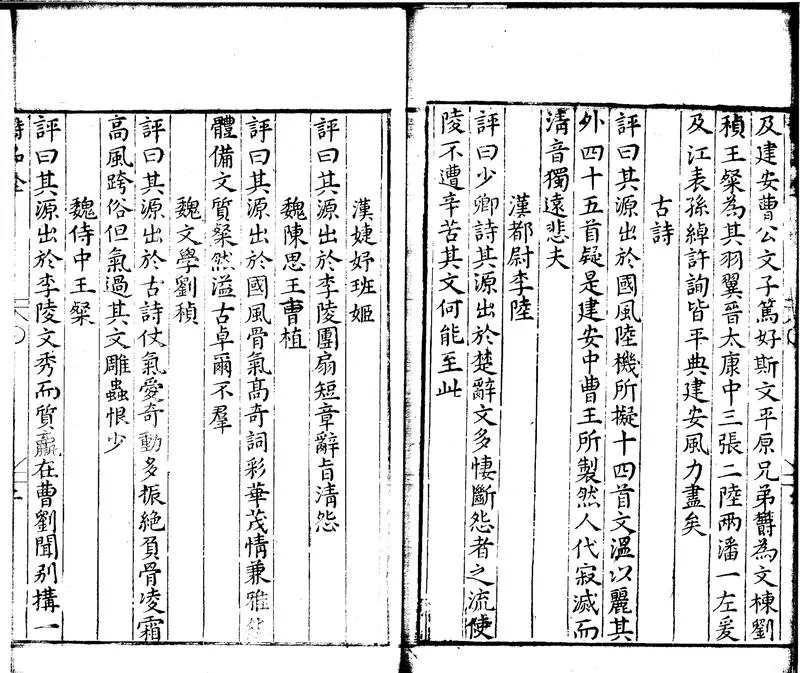 及建安曹公父子篤好斯文平原兄弟欝為文棟劉
楨王粲為其羽翼晉太康中三張二陸兩潘一左爰
及江表孫綽許詢皆平典建安風力盡矣
古詩
評曰其源出於國風陸機所擬十四首文温以麗其
外四十五首疑是建安中曹王所製然人代寂滅而
清音獨遠悲夫
漢都尉李陸
評曰少卿詩其源出於楚辭文多悽斷怨者之流使
陵不遭辛苦其文何能至此
漢婕妤班姬
評曰其源出於李陵團扇短章辭旨清怨
魏陳思王曹植
評曰其源出於國風骨氣髙奇詞彩華茂情兼雅
體備文質粲然溢古卓爾不羣
魏文學劉楨
評曰其源出於古詩仗氣愛奇動多振絶負骨凌霜
高風跨俗但氣過其文雕蟲恨少
魏侍中王粲
評曰其源出於李陵文秀而質羸在曹劉聞别搆一